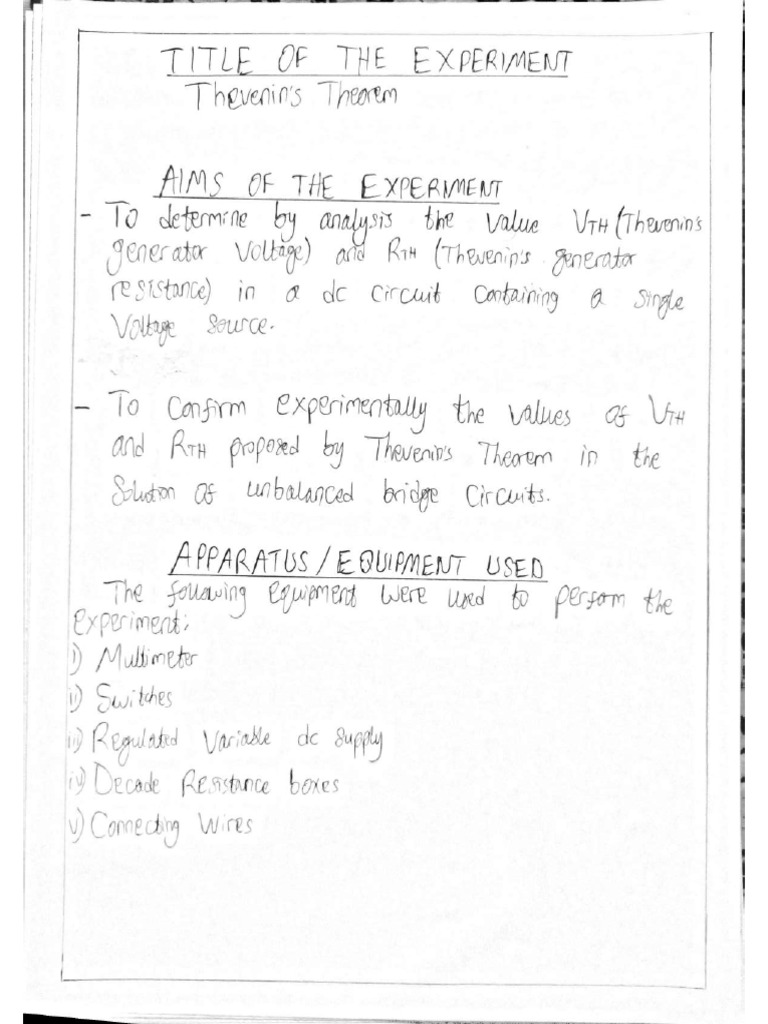 TITLE OF THE EXPERIMENT
Thevenin's Theorem
AIMS OF THE EXPERIMENT
- To determine by analysis the value VTH (Thevenin's
generator voltage) and RTH (Thevenin's generator
resistance) in a dc circuit containing a single
voltage source.
- To confirm experimentally the values of VTH
and RTH proposed by Thevenin's Theorem in the
solution of unbalanced bridge circuits.
APPARATUS / EQUIPMENT USED
The following equipment were used to perform the
experiment:
i) Multimeter
ii) Switches
iii) Regulated Variable dc supply
iv) Decade Resistance boxes
v) Connecting Wires